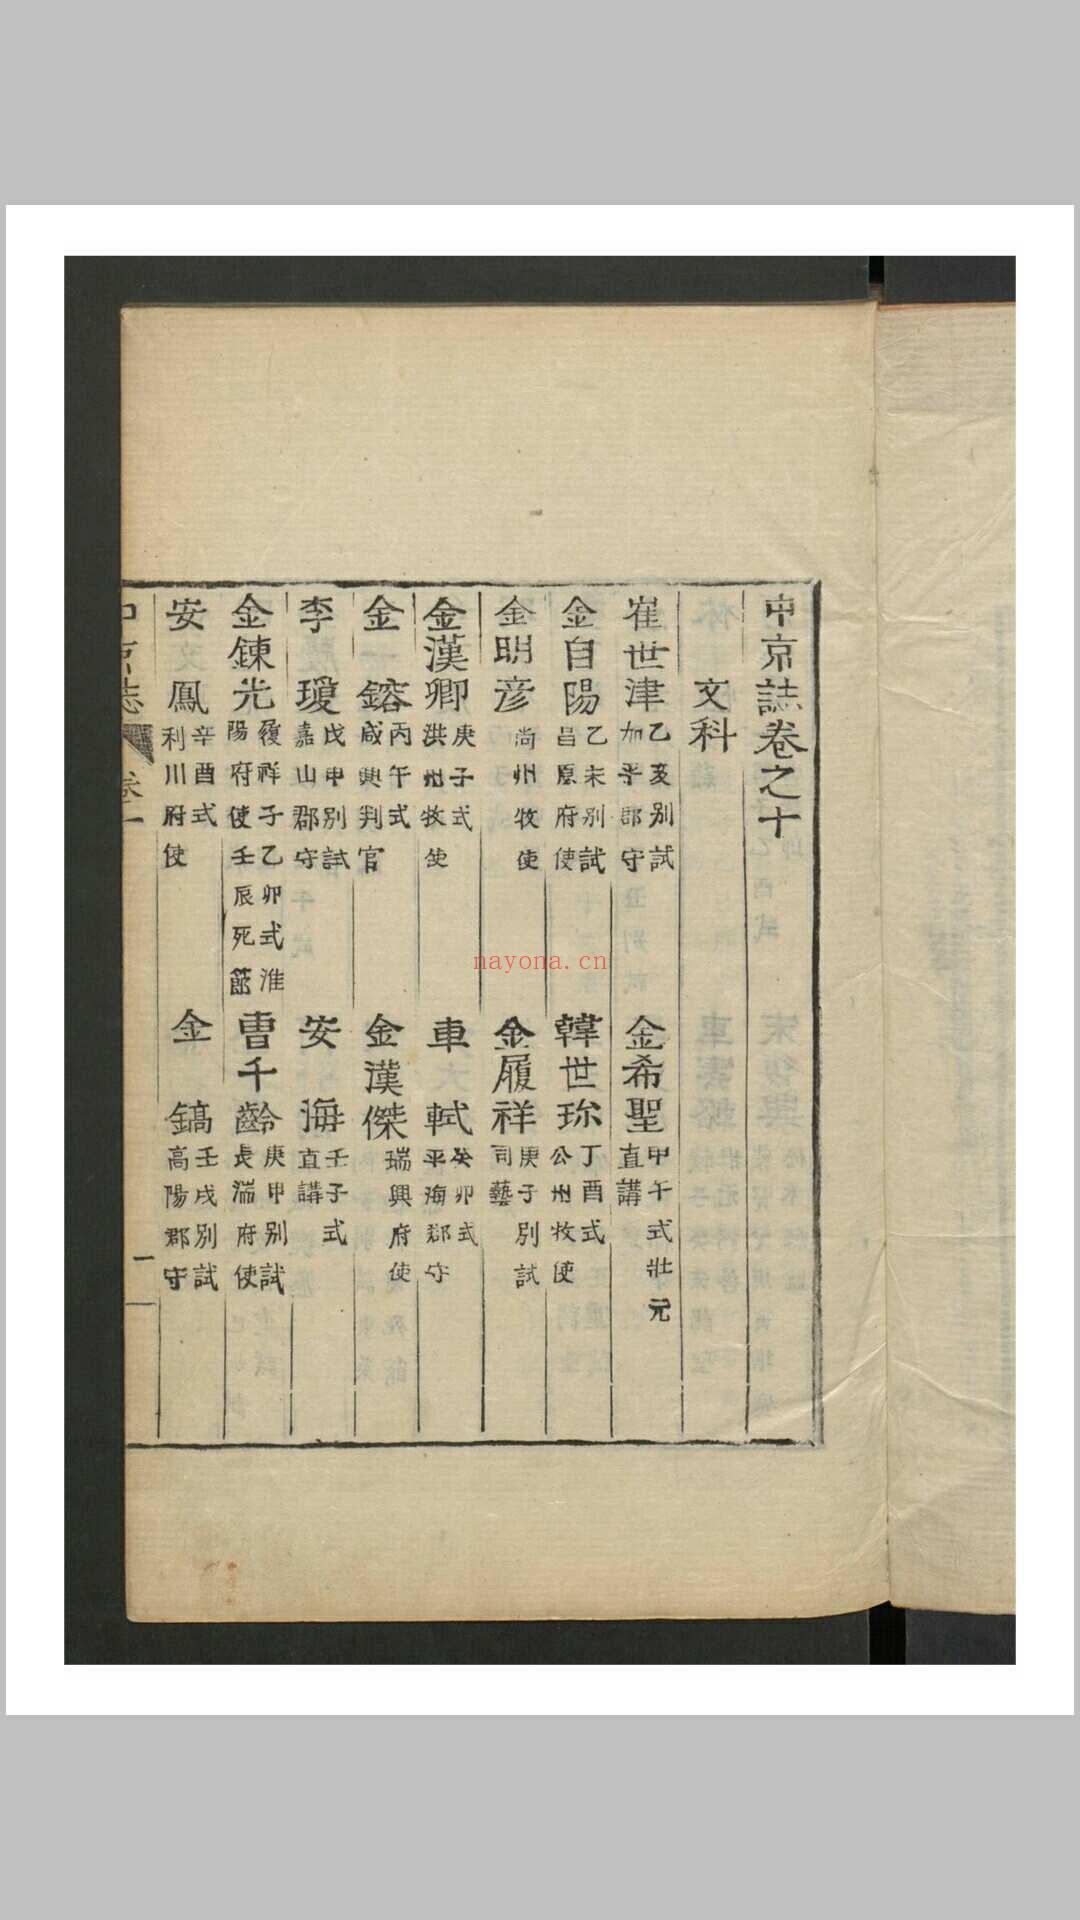 中京誌卷之十
文科
崔世津 乙亥別試 加平郡守
金希聖 甲午式壯元 直講
金自陽 乙未別試 昌原府使
韓世珎 丁酉式 公州牧使
金明彦 尚州牧使
金履祥 庚子別試 司藝
金漢卿 庚子式 洪州牧使
車軾 癸卯式 平海郡守
金鎔 丙午式 咸興判官
金漢傑 瑞興府使
李瓊 戊申別試 嘉山郡守
安海 壬子式 直講
金鍊光 履祥子乙卯式淮 陽府使壬辰死節
曺千齡 庚申別試 長湍府使
安鳳 辛酉式 利川府使
金鎬 壬戌別試 高陽郡守
中京誌 卷十 一
nayona.cn